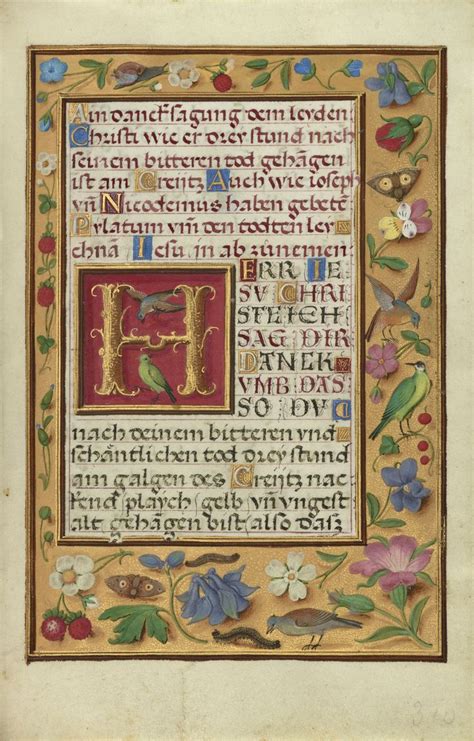 Ain dancksagung dem leyden
Christi wie er drey stund nach
seinem bitteren tod gehangen
ist am Creütz Auch wie ioseph
vn̄ Nicodemus haben gebetē
Pylatum vm̄ den todten ley
chnā Iesu in ab zunemen
HERR IE
SV CHRI
STE ICH
SAG DIR
DANCK
VMB DAS
SO DV
nach deinem bitteren vnd
schäntlichen tod drey stund
am galgen des Creütz nac
kend playch gelb vn̄ vngest
alt gehangen bist also das